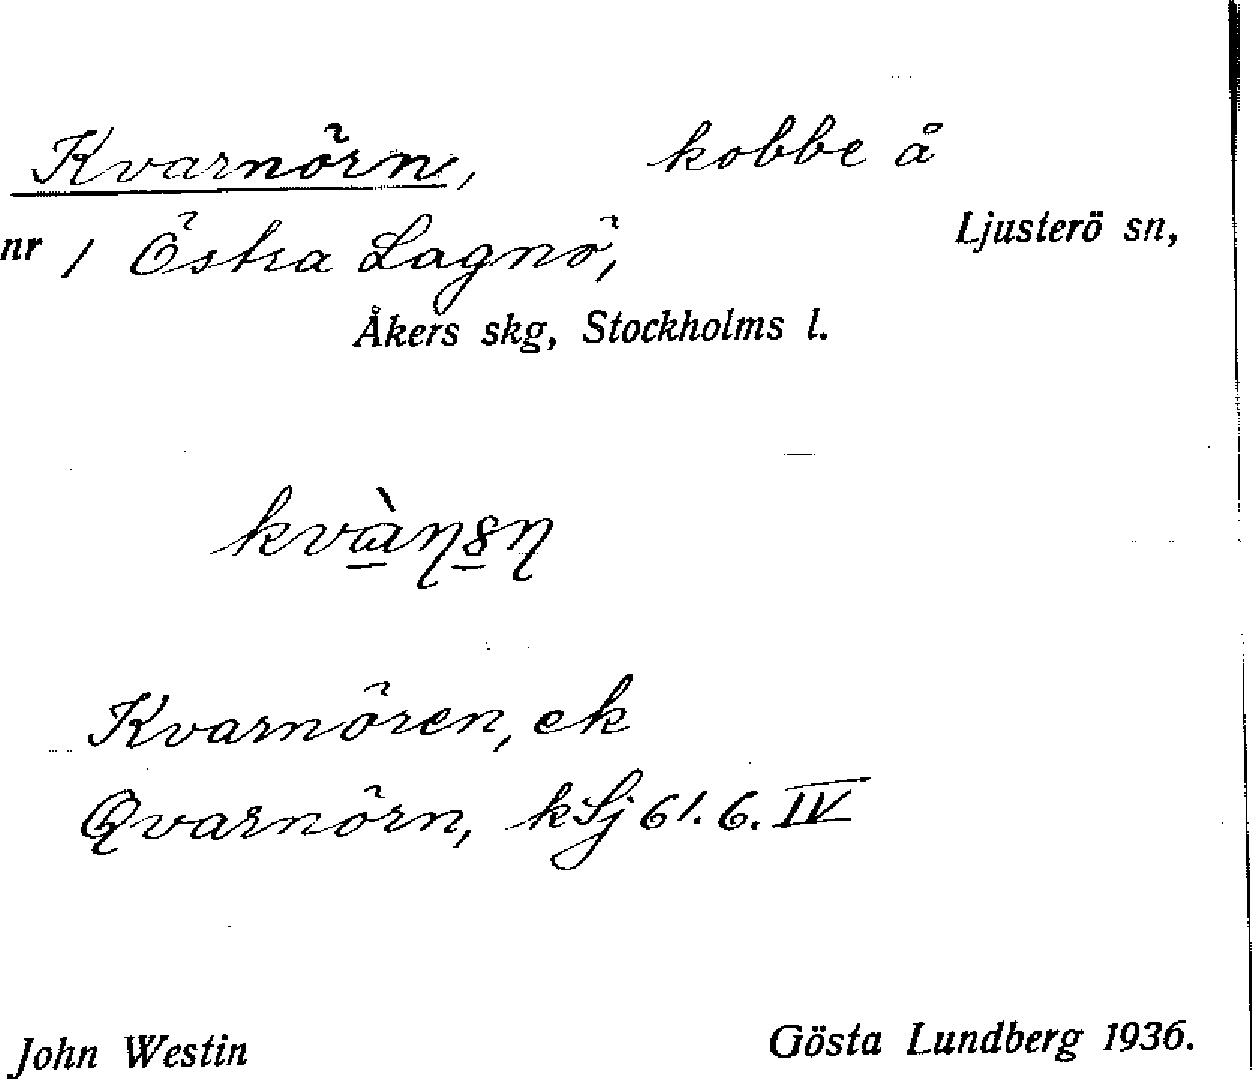 Kvarnörn, kobbe å
nr 1 Östra Lagnö, Ljusterö sn,
Åkers skg, Stockholms l.
Kvarnören, ek
Qvarnörn, kSj 61.6.IV
John Westin Gösta Lundberg 1936.